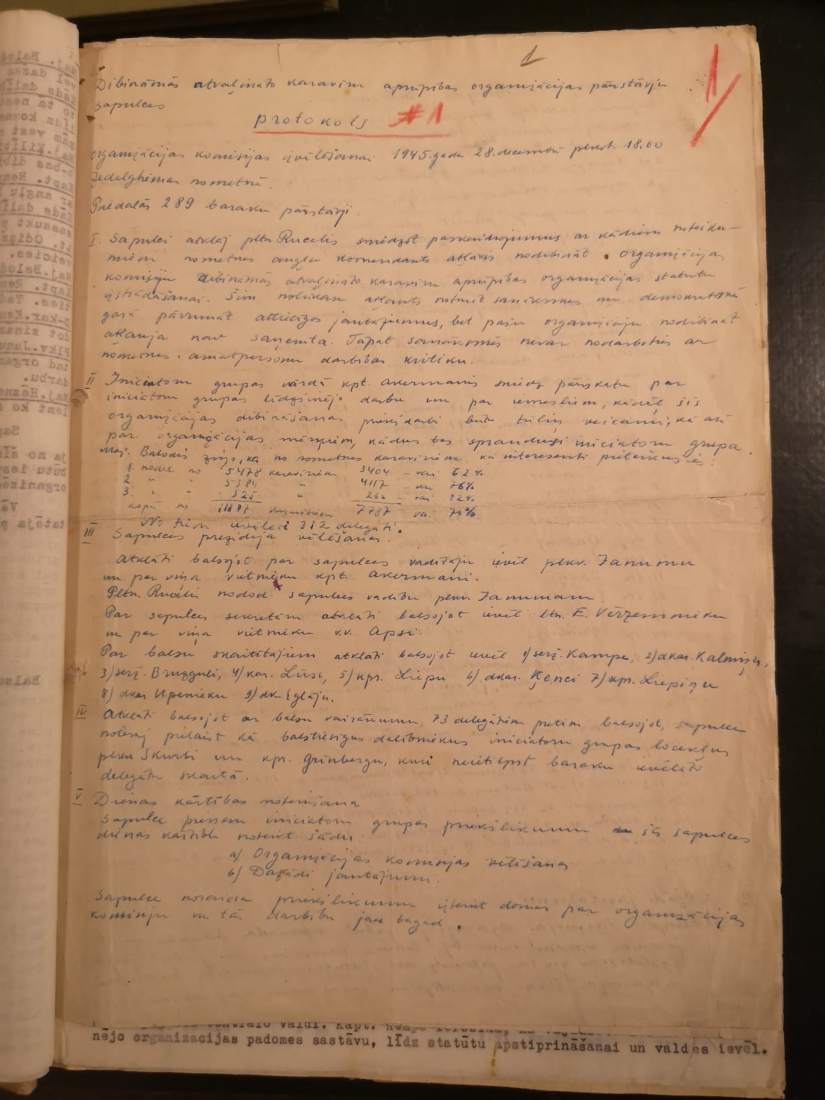 1
1/
Dibināmās atvaļināto karavīru aprūpības organizācijas pārstāvju
sapulces
protokols #1
organizācijas komisijas izvēlēšanai 1945.gada 28.decembrī plkst. 18.00
Zedelghemas nometnē.
Piedalās 289 baraku pārstāvji.
I. Sapulci atklāj pltn. Rucelis sniedzot paskaidrojumus ar kādiem noteiku-
miem nometnes angļu komendants atļāvis nodibināt organizācijas
komisiju dibināmās atvaļināto karavīru aprūpības organizācijas statutu
izstrādāšanai. Šim nolūkam atļauts noturēt sanāksmes un demokrātiskā
garā pārrunāt attiecīgos jautājumus, bet pašu organizāciju nodibināt
atļauja nav saņemta. Tāpat sanāksmēs nevar nodarboties ar
nometnes amatpersonu darbības kritiku.
II Iniciatoru grupas vārdā kpt. Akermanis sniedz pārskatu par
iniciatoru grupas līdzšinējo darbu un par iemesliem, kādēļ šīs
organizācijas dibināšanas priekšdarbi būtu tūliņ veicami, kā arī
par organizācijas mērķiem, kādus tos spraudusi iniciatoru grupa.
Maj. Balodis ziņo, ka no nometnes karavīriem kā interesenti pieteikušies:
1. nodal. no 5478 karavīriem 3404 - vai 62%
2. " " 5384 " 4117 - vai 76%
3. " " 325 " 266 - vai 82%
kopā no 11187 karavīriem 7787 vai 70%
No tiem ievēlēti 312 delegāti.
III Sapulces prezidija vēlēšanas.
Atklāti balsojot par sapulces vadītāju ievēl plkv. Janumu
un par viņa vietnieku kpt. Akermani.
Pltn. Rucelis nodod sapulces vadību plkv. Janumam.
Par sapulces sekretāru atklāti balsojot ievēl ltn. E. Vērzemnieku
un par viņa vietnieku kv. Apsi.
Par balsu skaitītājiem atklāti balsojot ievēl 1) serž. Kampe, 2) dkar. Kalniņu,
3) serž. Bruzguli, 4) kar. Lūsi, 5) kpr. Liepu 6) dkar. Ķenci 7) kpr. Liepiņu
8) dkar Upenieku 9) dk. Eglāju.
IV Atklāti balsojot ar balsu vairākumu, 73 delegātiem pretim balsojot, sapulce
nolemj pielaist kā balstiesīgus dalībniekus iniciatoru grupas locekļus
plkv Skurbi un kpr. Grīnbergu, kuri neietilpst baraku ievēlēto
delegātu skaitā.
V Dienas kārtības noteikšana
Sapulce pieņem iniciatoru grupas priekšlikumu šīs sapulces
dienas kārtību noteikt šādu:
a) Organizācijas komisijas vēlēšanas
b) Dažādi jautājumi.
Sapulce noraida priekšlikumu izteikt domas par organizācijas
komisiju un tās darbību jau tagad.
nējo organizacijas padomes sastāvu, līdz statūtu apstiprināšanai un valdes ievēl.